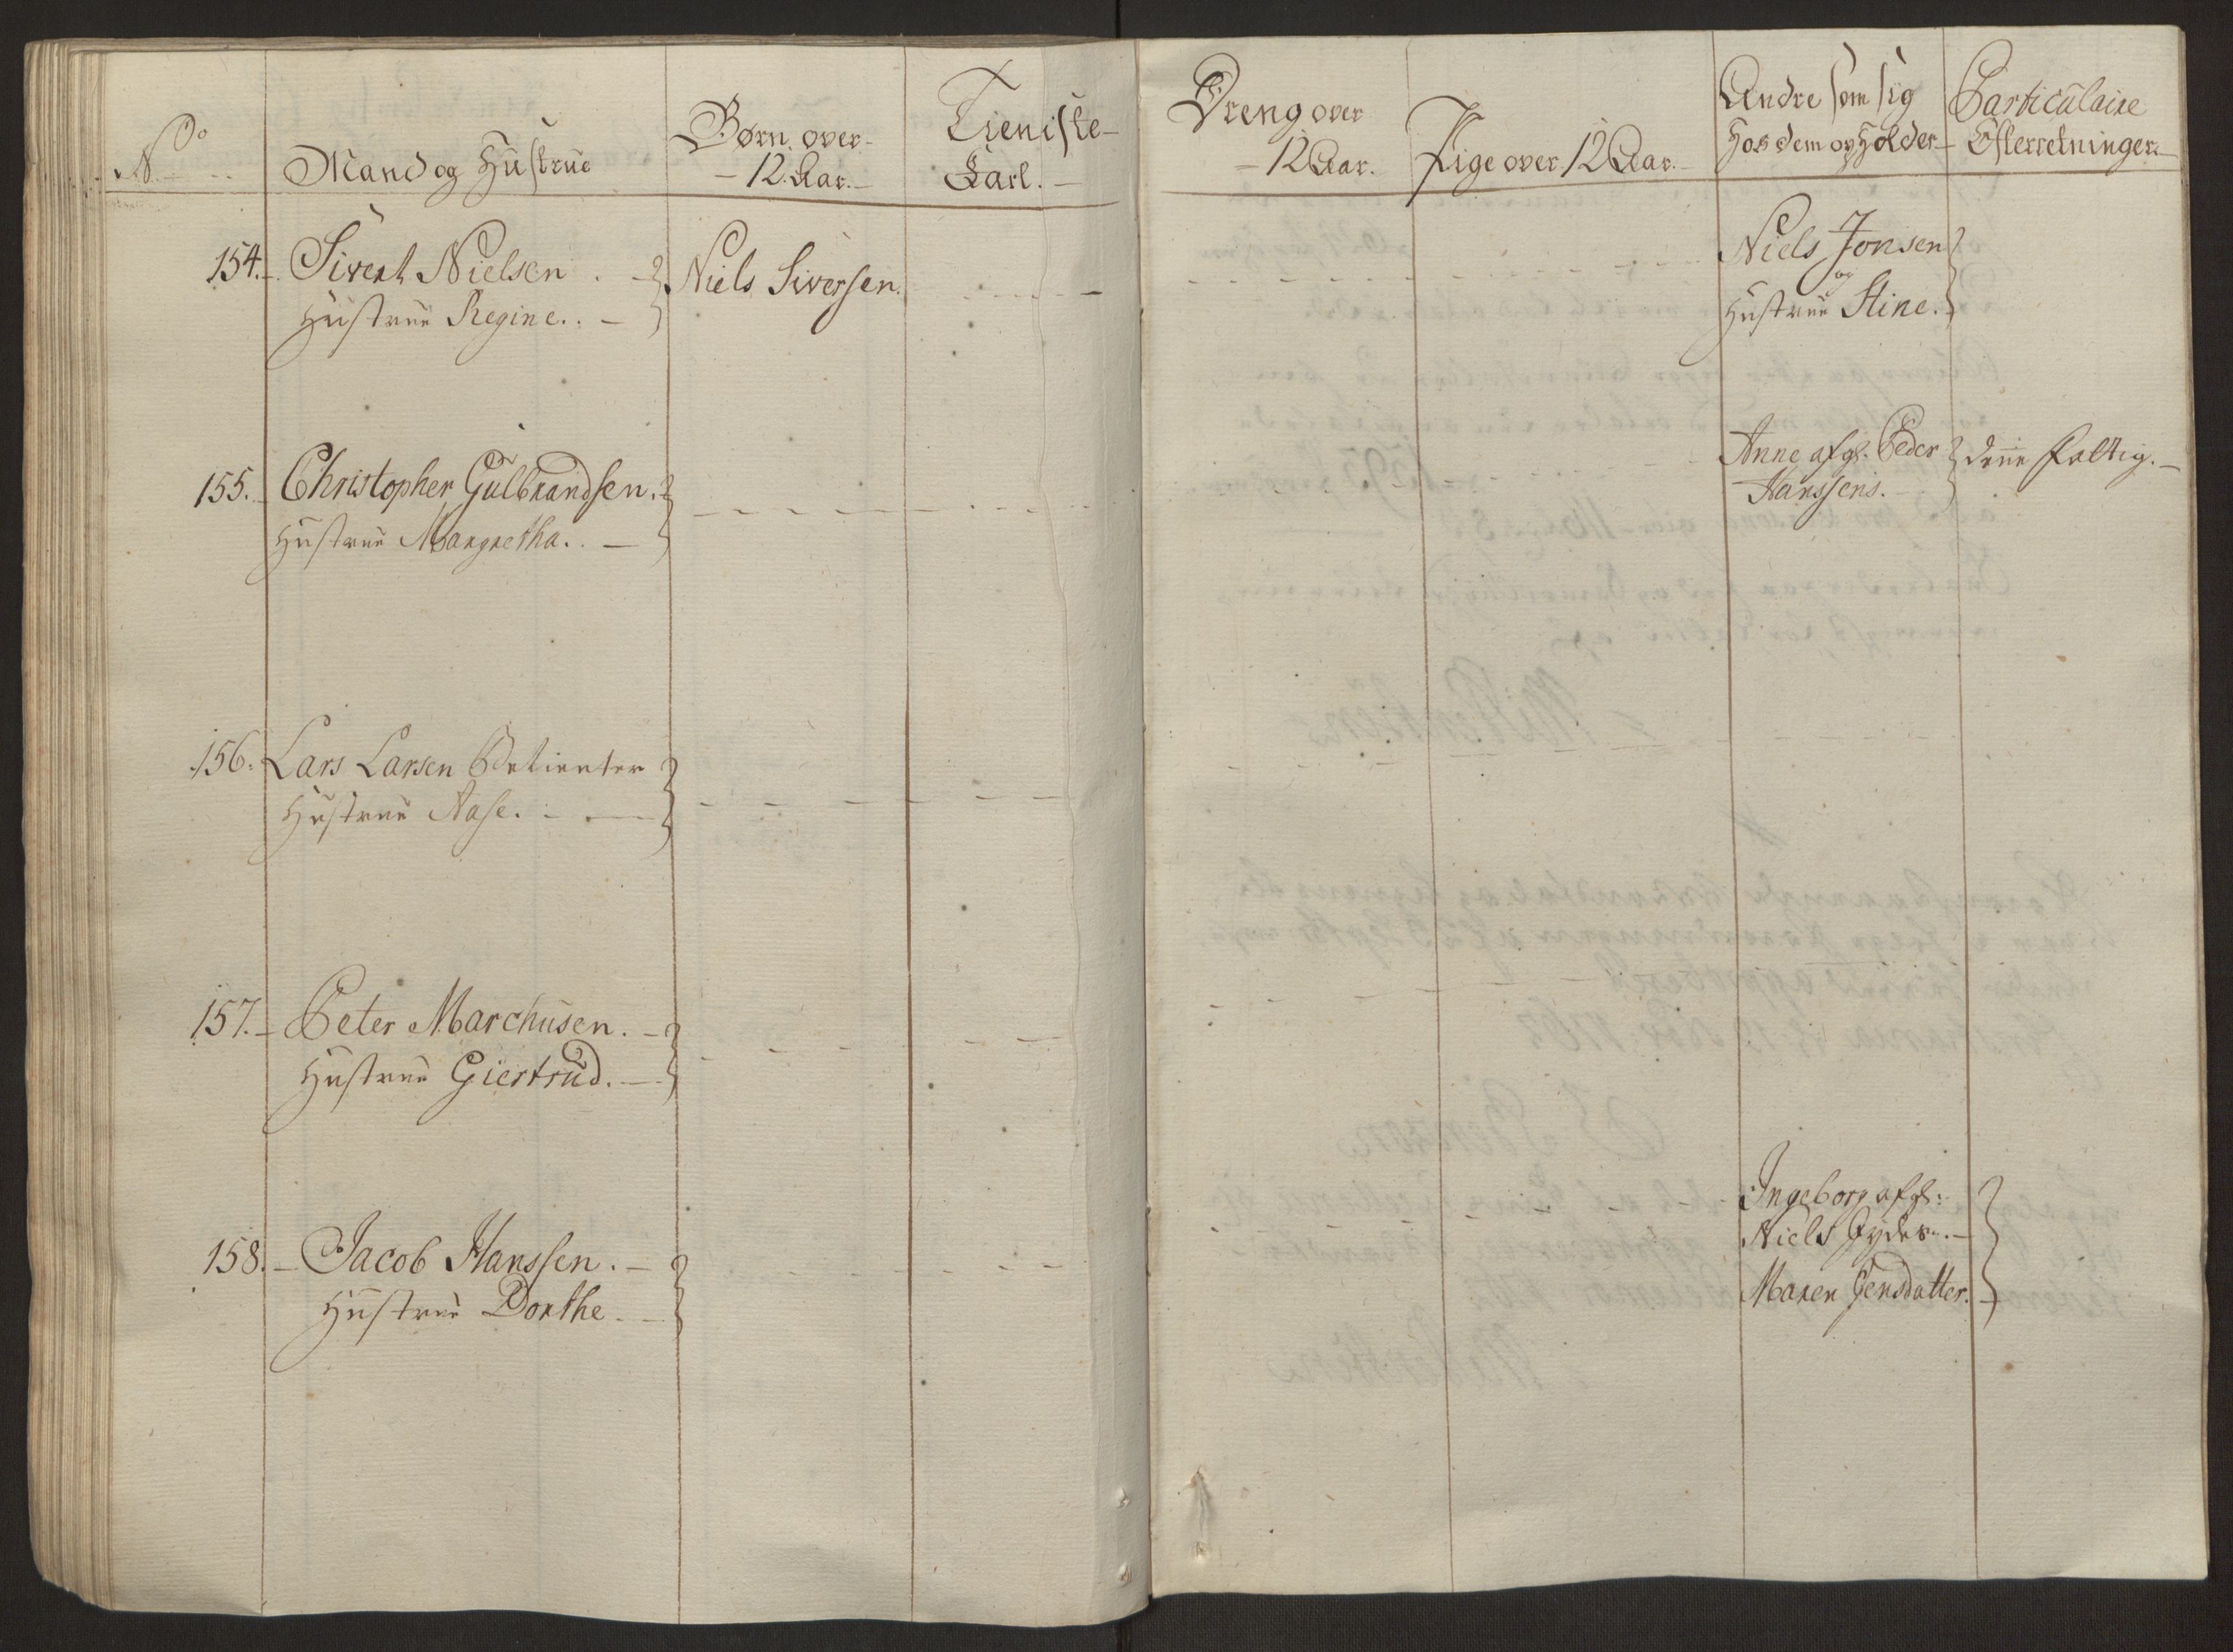 No
Mand og Hustrue
Børn over
12 Aar.
Tieniste
Karl.
Dreng over
12 Aar.
Pige over 12 Aar.
Andre som sig
hos dem opholder
Particulaire
Efterretninger.
154. Sivert Nielsen
Hustrue Regine.
Niels Siversen.
Niels Jonsen
og
Hustrue Stine.
155. Christopher Gulbrandsen.
Hustrue Margretha.
Anne afgl. Peder
Hanssens.
denne fattig.
156. Lars Larsen Betienter
Hustrue Aase.
157. Peter Marchusen.
Hustrue Giertrud.
158. Jacob Hanssen.
Hustrue Dorthe.
Ingeborg afgl:
Niels
Maren Jensdatter.